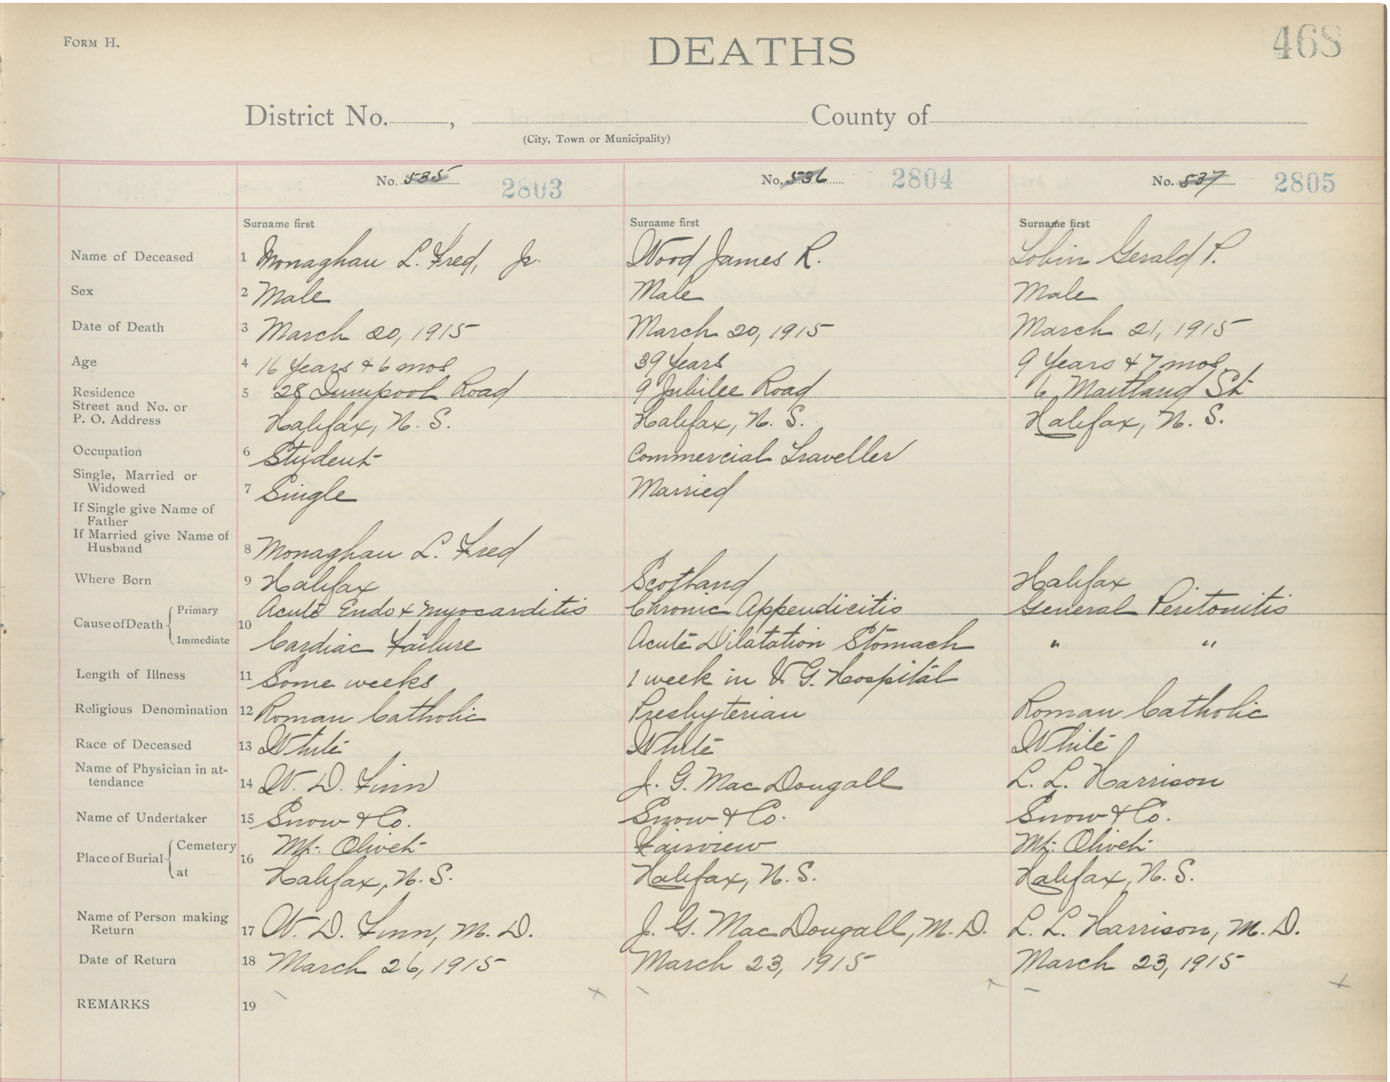 FORM H.
DEATHS
468
District No. , County of
(City, Town or Municipality)
No. 535 2803 No. 536 2804 No. 537 2805
Surname first Surname first Surname first
Name of Deceased 1 Monaghan L. Fred, Jr. Wood James R. Gerald P.
Sex 2 Male Male Male
Date of Death 3 March 20, 1915 March 20, 1915 March 21, 1915
Age 4 16 Years & 6 mos 39 Years 9 Years & 7 mos
Residence 5 28 Road 9 Jubilee Road 6 Maitland St
Street and No. or
P. O. Address Halifax, N. S. Halifax, N. S. Halifax, N. S.
Occupation 6 Student Commercial Traveller
Single, Married or
Widowed 7 Single Married
If Single give Name of
Father
If Married give Name of
Husband 8 Monaghan L. Fred
Where Born 9 Halifax Scotland Halifax
Cause of Death 10 Primary Acute Endo & Myocarditis Chronic Appendicitis General Peritonitis
Immediate Cardiac Failure Acute Dilatation Stomach " "
Length of Illness 11 Some weeks 1 week in V. G. Hospital
Religious Denomination 12 Roman Catholic Presbyterian Roman Catholic
Race of Deceased 13 White White White
Name of Physician in at-
tendance 14 W. D. Finn J. G. MacDougall L. L. Harrison
Name of Undertaker 15 Snow & Co. Snow & Co. Snow & Co.
Place of Burial 16 Cemetery Mt. Olivet Fairview Mt. Olivet
at Halifax, N. S. Halifax, N. S. Halifax, N. S.
Name of Person making
Return 17 W. D. Finn, M. D. J. G. MacDougall, M. D. L. L. Harrison, M. D.
Date of Return 18 March 26, 1915 March 23, 1915 March 23, 1915
REMARKS 19